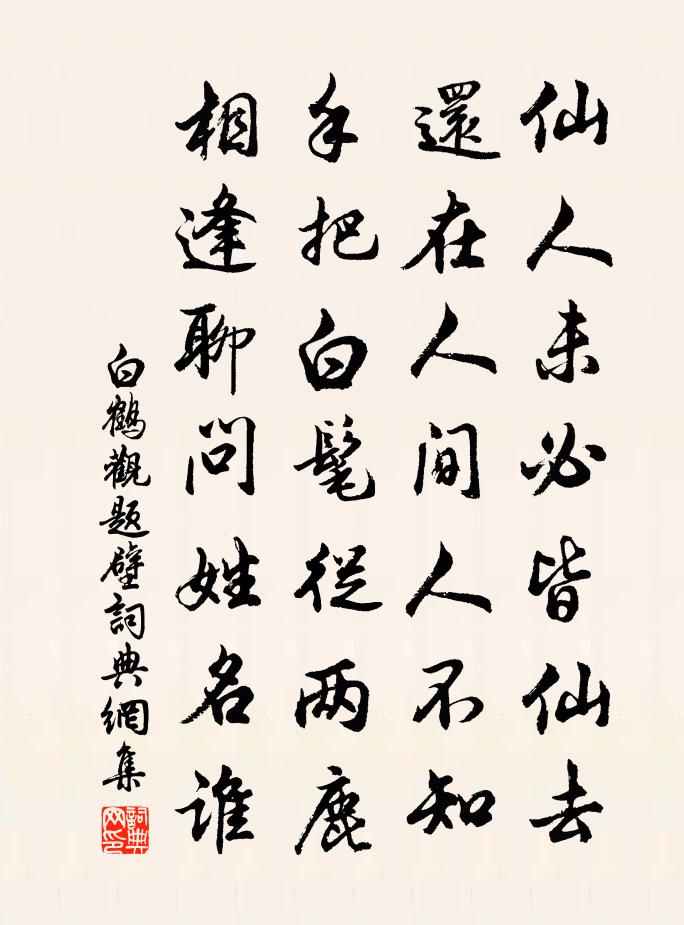 仙人未必皆仙去
還在人間人不知
手把白髦從两鹿
相逢聊問姓名誰
白鶴觀題壁詞典網集
詞典網印